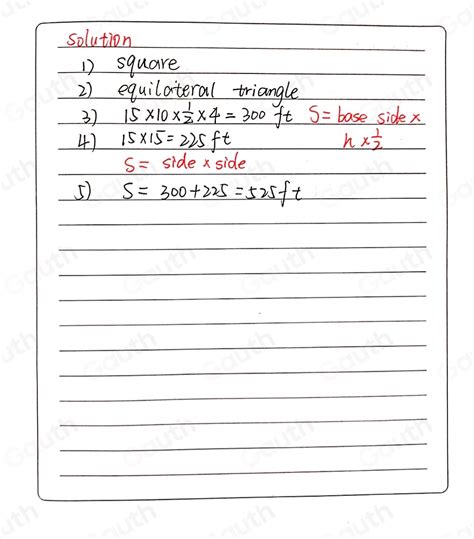 Solution
1) square
2) equilateral triangle
3) 15×10×½×4=300 ft S=base side×
4) 15×15=225ft h×½
S= side×side
5) S= 300+225=525ft